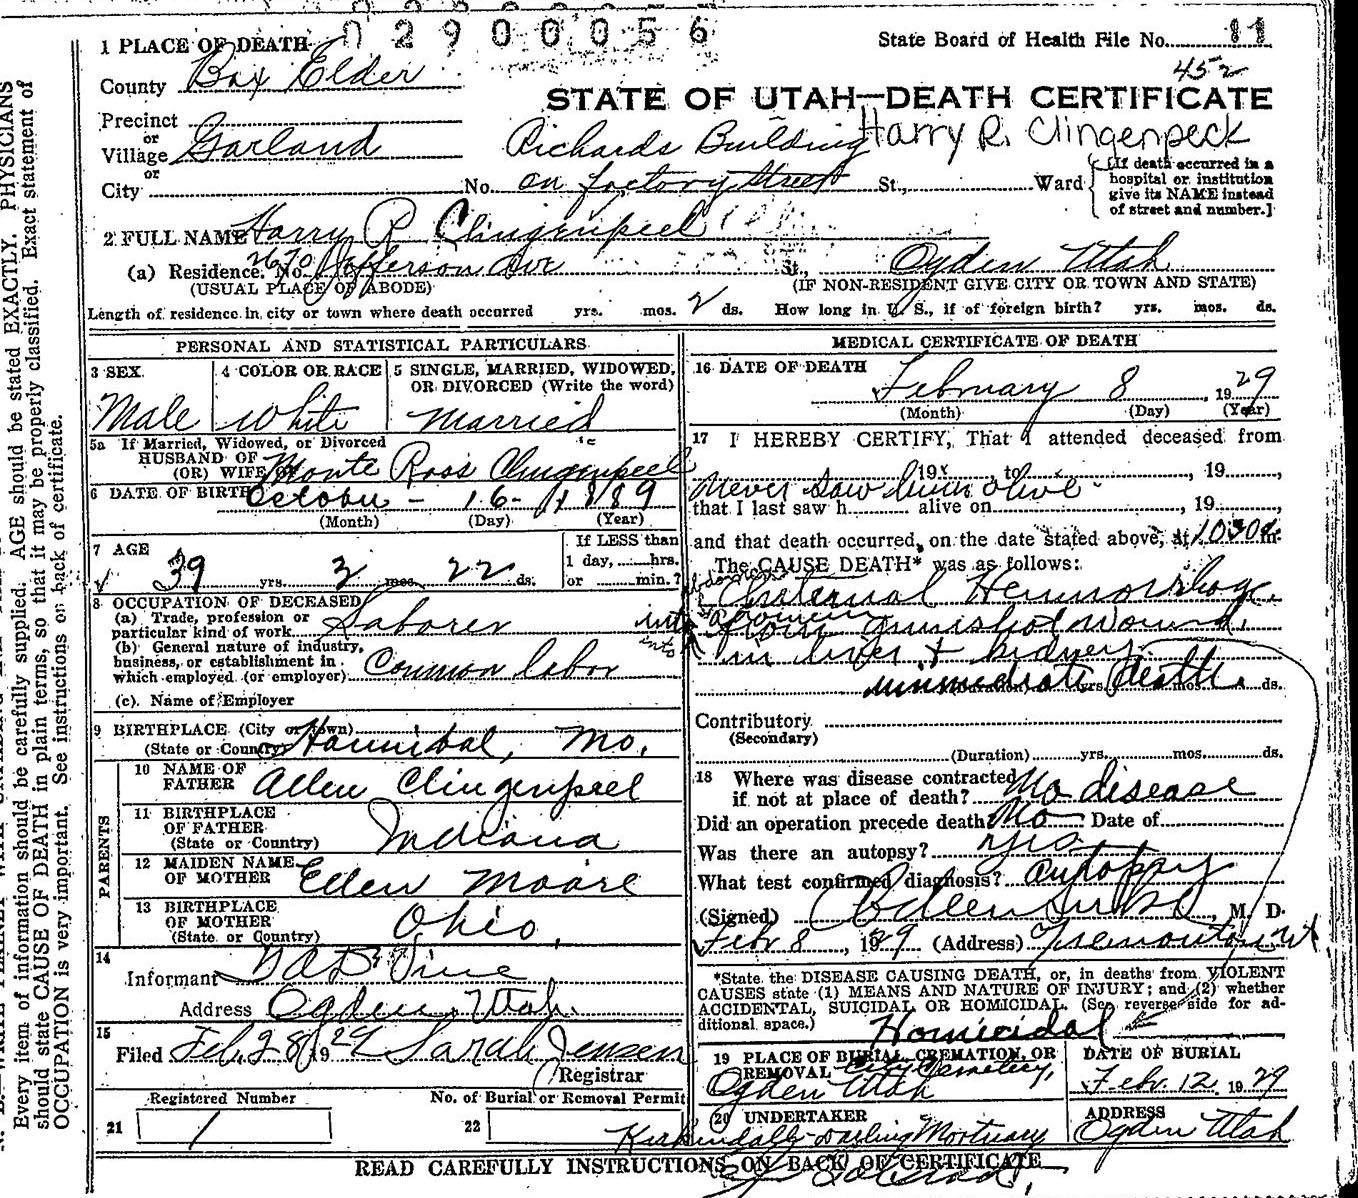 02900056
1 PLACE OF DEATH
State Board of Health File No. 11
452
County Box Elder
STATE OF UTAH—DEATH CERTIFICATE
Precinct
or
Village Garland Richards Building Harry R. Clingenpeck
or
City No. on factory street St., Ward
[If death occurred in a hospital or institution give its NAME instead of street and number.]
2 FULL NAME Harry R Clingenpeel
(a) Residence. No. 2670 Jefferson Ave St., Ogden Utah
(USUAL PLACE OF ABODE) (IF NON-RESIDENT GIVE CITY OR TOWN AND STATE)
Length of residence in city or town where death occurred yrs. mos. 2 ds. How long in U. S., if of foreign birth? yrs. mos. ds.
PERSONAL AND STATISTICAL PARTICULARS
3 SEX
Male
4 COLOR OR RACE
White
5 SINGLE, MARRIED, WIDOWED, OR DIVORCED (Write the word)
Married
5a If Married, Widowed, or Divorced
HUSBAND OF
(OR) WIFE OF Monte Ross Clingenpeel
6 DATE OF BIRTH October - 16 - 1889
(Month) (Day) (Year)
7 AGE
39 yrs. 3 mos. 22 ds.
If LESS than
1 day, hrs.
or min.?
8 OCCUPATION OF DECEASED
(a) Trade, profession or
particular kind of work Laborer
(b) General nature of industry,
business, or establishment in
which employed (or employer) Common labor
(c). Name of Employer
9 BIRTHPLACE (City or town)
(State or Country) Hannibal, Mo.
PARENTS
10 NAME OF
FATHER Allen Clingenpeel
11 BIRTHPLACE
OF FATHER
(State or Country) Indiana
12 MAIDEN NAME
OF MOTHER Ellen Moore
13 BIRTHPLACE
OF MOTHER
(State or Country) Ohio
14
Informant
Address Ogden, Utah
15
Filed Feb. 28 1929 Sarah Jensen
Registrar
Registered Number
No. of Burial or Removal Permit
21 1
22
MEDICAL CERTIFICATE OF DEATH
16 DATE OF DEATH
February 8, 1929
(Month) (Day) (Year)
17 I HEREBY CERTIFY, That I attended deceased from
, 19 to , 19
Never saw him alive
that I last saw h alive on , 19
and that death occurred, on the date stated above, at 1030 m.
The CAUSE DEATH* was as follows:
Internal Hemorrhage
into abdomen
from gunshot wound
in liver & kidney
immediate death
(Duration) yrs. mos. ds.
Contributory
(Secondary)
(Duration) yrs. mos. ds.
18 Where was disease contracted
if not at place of death? No disease
Did an operation precede death? No Date of
Was there an autopsy? Yes
What test confirmed diagnosis? Autopsy
(Signed) , M. D.
Feb 8, 1929 (Address) Tremonton, Ut
*State the DISEASE CAUSING DEATH, or, in deaths from VIOLENT
CAUSES state (1) MEANS AND NATURE OF INJURY; and (2) whether
ACCIDENTAL, SUICIDAL OR HOMICIDAL. (See reverse side for ad-
ditional space.)
Homicidal
19 PLACE OF BURIAL, CREMATION, OR
REMOVAL City Cemetery,
Ogden Utah
DATE OF BURIAL
Feb. 12 1929
20 UNDERTAKER
Kirkendall-Darling Mortuary
ADDRESS
Ogden Utah
READ CAREFULLY INSTRUCTIONS ON BACK OF CERTIFICATE
Every item of information should be carefully supplied. AGE should be stated EXACTLY. PHYSICIANS
should state CAUSE OF DEATH in plain terms, so that it may be properly classified. Exact statement of
OCCUPATION is very important. See instructions on back of certificate.